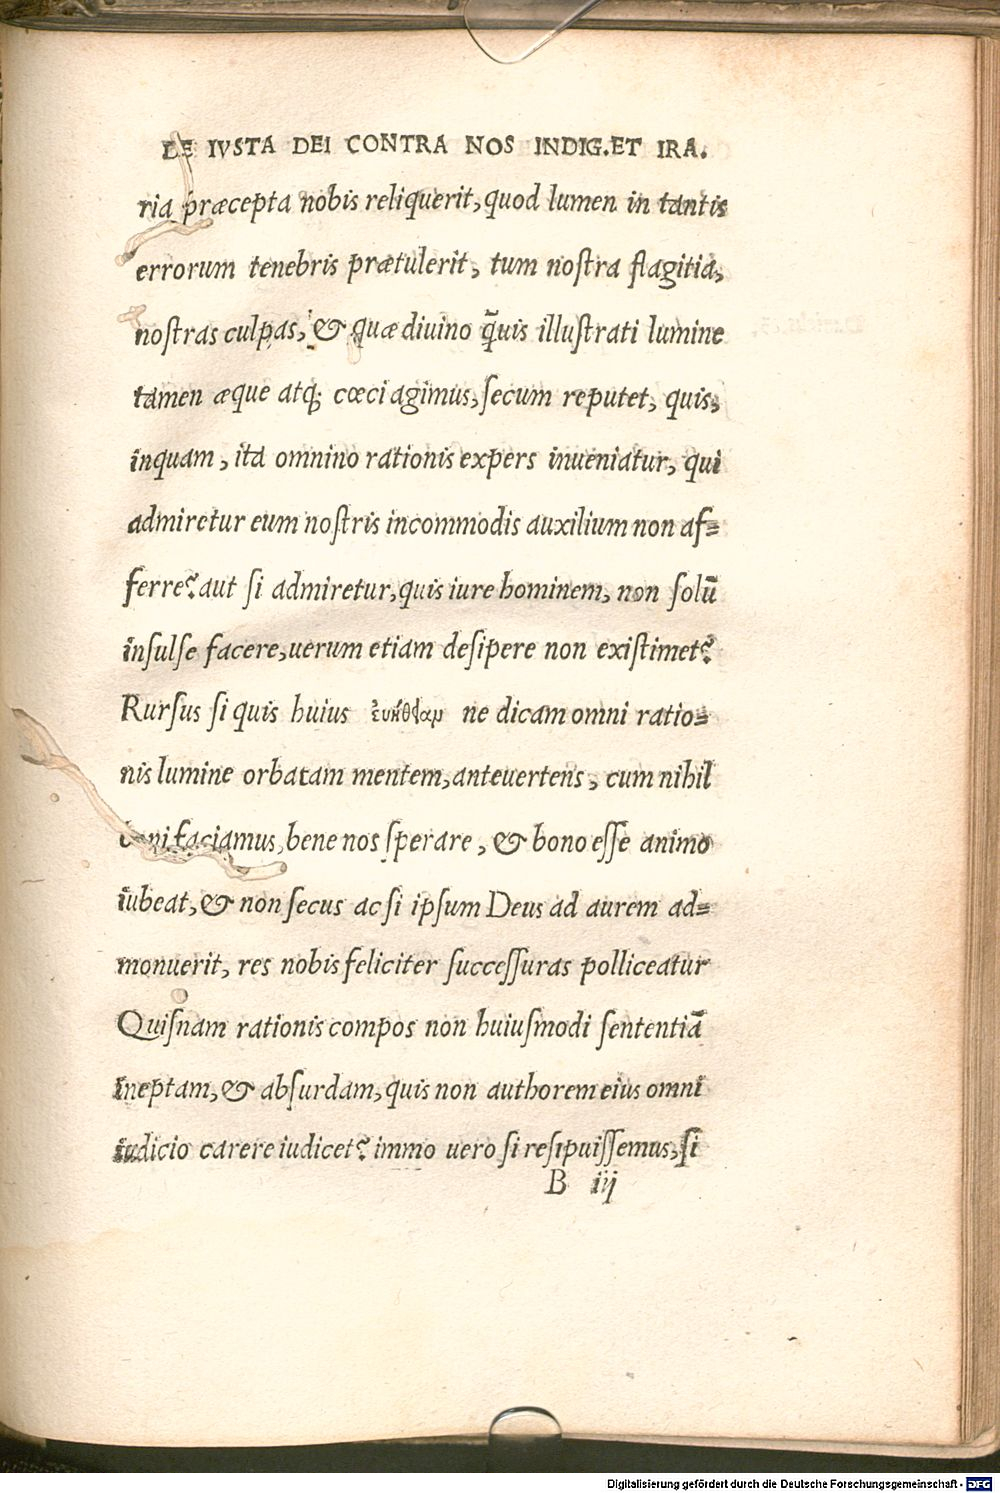 DE IVSTA DEI CONTRA NOS INDIG.ET IRA.
ria præcepta nobis reliquerit, quod lumen in tantis
errorum tenebris prætulerit, tum noſtra flagitia,
noſtras culpas, & quæ diuino q̃uis illuſtrati lumine
tamen æque atq; cœci agimus, ſecum reputet, quis,
inquam, ita omnino rationis expers inueniatur, qui
admiretur eum noſtris incommodis auxilium non af=
ferre? aut ſi admiretur, quis iure hominem, non ſolũ
inſulſe facere, uerum etiam deſipere non exiſtimet?
Rurſus ſi quis huius ne dicam omni ratio=
nis lumine orbatam mentem, anteuertens, cum nihil
boni faciamus, bene nos ſperare, & bono eſſe animo
iubeat, & non ſecus ac ſi ipſum Deus ad aurem ad=
monuerit, res nobis feliciter ſucceſſuras polliceatur
Quiſnam rationis compos non huiuſmodi ſententiã
ineptam, & abſurdam, quis non authorem eius omni
iudicio carere iudicet? immo uero ſi reſipuiſſemus, ſi
B iij
Digitalisierung gefördert durch die Deutsche Forschungsgemeinschaft - DFG